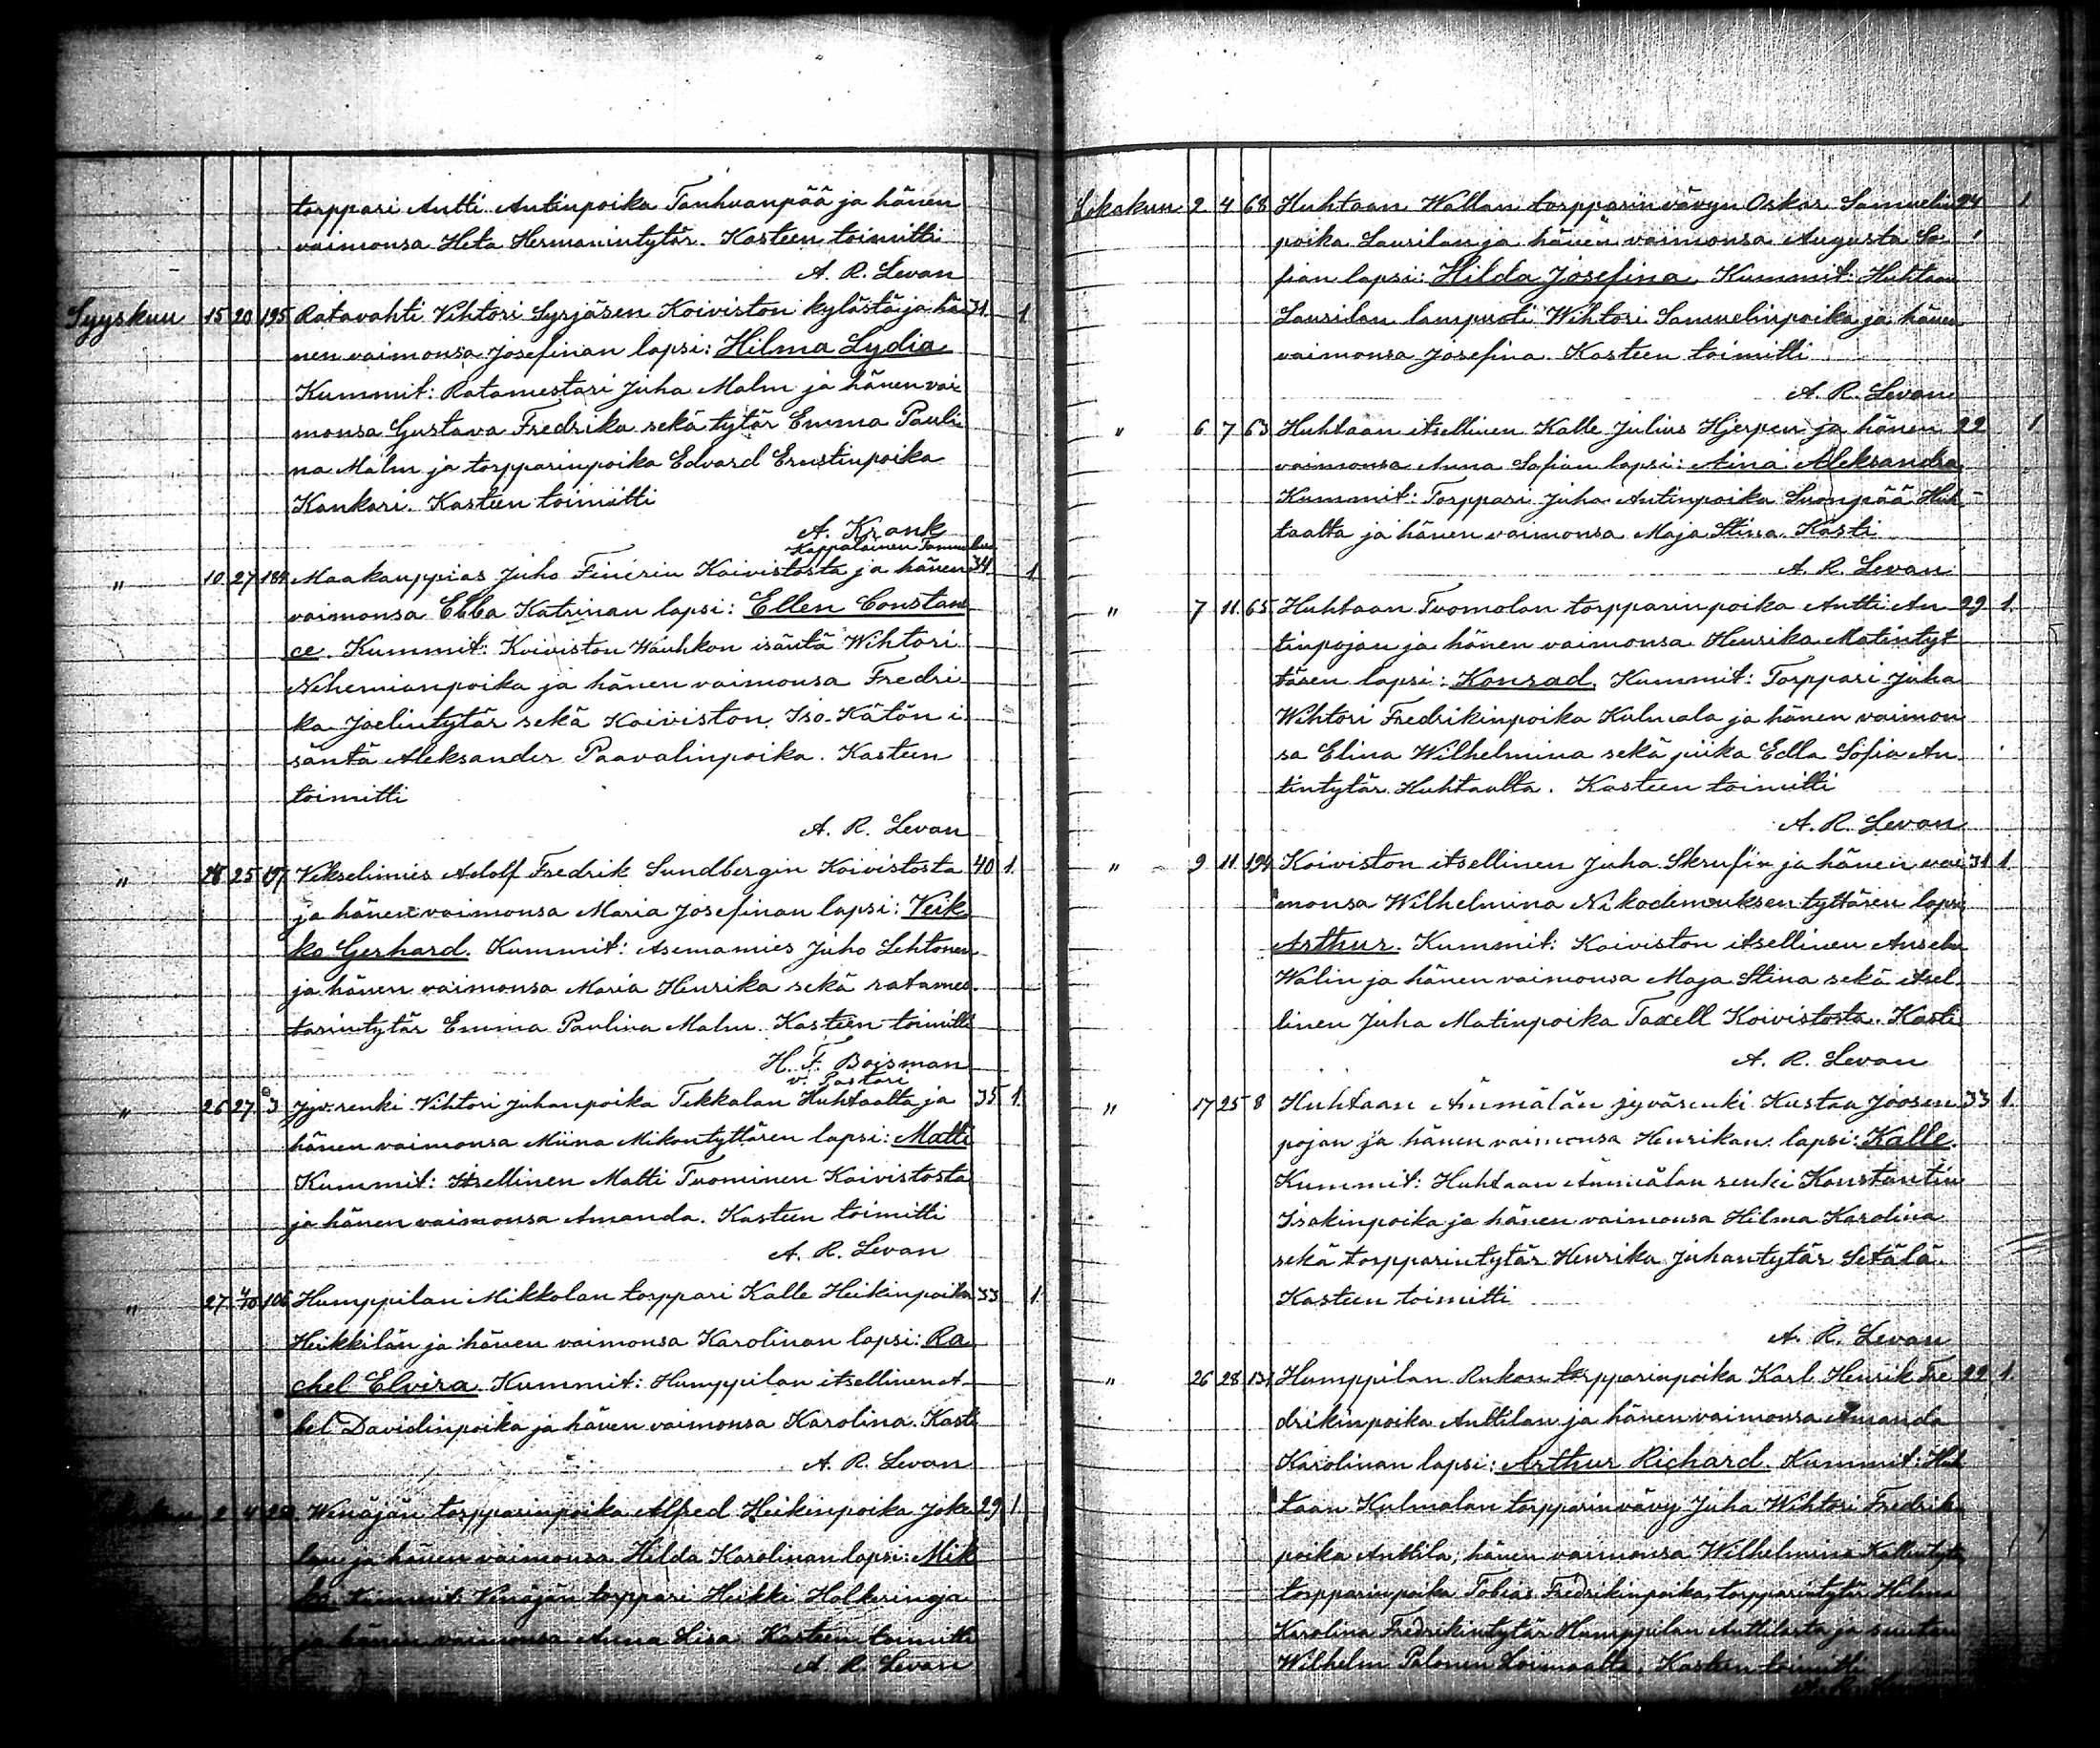 torppari Antti Antinpoika Tanhuanpää ja hänen
vaimonsa Heta Hermanintytär. Kasteen toimitti
A. R. Levan
Syyskuu 15 20 195 Ratavahti Vihtori Syrjäsen Koiviston kylästä ja hä 31 1
nen vaimonsa Josefinan lapsi: Hilma Lydia
Kummit: Ratamestari Juha Malm ja hänen vai
monsa Gustava Fredrika sekä tytär Emma Pauli
na Malm ja torpparinpoika Edvard Ernstinpoika
Kankari. Kasteen toimitti
A. Krank
Kappalainen
" 10 27 189 Maakauppias Juho Finérin Koivistosta ja hänen 34 1
vaimonsa Ebba Katrinan lapsi: Ellen Constan
ce. Kummit: Koiviston Wauhkon isäntä Wihtori
Nehemianpoika ja hänen vaimonsa Fredri
ka Joelintytär sekä Koiviston Iso-Kätön i
säntä Aleksander Paavalinpoika. Kasteen
toimitti
A. R. Levan
" 18 25 197 Vekselimies Adolf Fredrik Sundbergin Koivistosta 40 1.
ja hänen vaimonsa Maria Josefinan lapsi: Veik
ko Gerhard. Kummit: Asemamies Juho Lehtonen
ja hänen vaimonsa Maria Henrika sekä ratames
tarintytär Emma Paulina Malm. Kasteen toimitti
H. F. Boisman
v. Pastori
" 26 27 3 Jyv. renki Vihtori Juhanpoika Tekkalan Huhtaalta ja 35 1.
hänen vaimonsa Miina Mikontyttären lapsi: Matti
Kummit: Itsellinen Matti Tuominen Koivistosta
ja hänen vaimonsa Amanda. Kasteen toimitti
A. R. Levan
" 27 4/10 106 Humppilan Mikkolan torppari Kalle Heikinpoika 33 1.
Heikkilän ja hänen vaimonsa Karolinan lapsi: Ra
chel Elvira. Kummit: Humppilan itsellinen A
bel Davidinpoika ja hänen vaimonsa Karolina. Kasti
A. R. Levan
2 4 Wenäjän torpparinpoika Alfred Heikinpoika Joke 29 1.
lan ja hänen vaimonsa Hilda Karolinan lapsi: Mik
ko Kummit: Venäjän torppari Heikki Holkeringa
ja hänen vaimonsa Anna Lisa. Kasteen toimitti
A. R. Levan
Lokakuu 2 4 68 Huhtaan Wallan torpparinvävyn Oskar Samuelin 24 1
poika Laurilan ja hänen vaimonsa Augusta So
fian lapsi: Hilda Josefina. Kummit: Huhtaan
Laurilan lampuoti Wihtori Samuelinpoika ja hänen
vaimonsa Josefina. Kasteen toimitti
A. R. Levan
" 6 7 63 Huhtaan itsellinen Kalle Julius Hjerpen ja hänen 22 1
vaimonsa Anna Sofian lapsi: Aina Aleksandra
Kummit: Torppari Juha Antinpoika Suonpää Huh-
taalta ja hänen vaimonsa Maja Stina. Kasti
A. R. Levan
" 7 11 65 Huhtaan Tuomolan torpparinpoika Antti An 29 1.
tinpojan ja hänen vaimonsa Henrika Matintyt
tären lapsi: Konrad. Kummit: Torppari Juha
Wihtori Fredrikinpoika Kulmala ja hänen vaimon
sa Elina Wilhelmina sekä piika Edla Sofia An
tintytär Huhtaalta. Kasteen toimitti
A. R. Levan
" 9 11 194 Koiviston itsellinen Juha Skrufin ja hänen vai 31 1.
monsa Wilhelmina Nikodemuksen tyttären lapsi
Arthur. Kummit: Koiviston itsellinen Anselm
Walin ja hänen vaimonsa Maja Stina sekä itsel
linen Juha Matinpoika Taxell Koivistosta. Kasti
A. R. Levan
" 17 25 8 Huhtaan Ämmälän jyvärenki Kustaa Joosen 33 1.
pojan ja hänen vaimonsa Henrikan lapsi: Kalle.
Kummit: Huhtaan Ämmälän renki Konstantin
Isakinpoika ja hänen vaimonsa Hilma Karolina
sekä torpparintytär Henrika Juhantytär Setälä.
Kasteen toimitti
A. R. Levan
" 26 28 131 Humppilan Rukon torpparinpoika Karl Henrik Fre 22 1.
drikinpoika Anttilan ja hänen vaimonsa Amanda
Karolinan lapsi: Arthur Richard. Kummit: Huh
taan Kulmalan torpparinvävy Juha Wihtori Fredrik
poika Anttila, hänen vaimonsa Wilhelmina Kallentytär
torpparinpoika Tobias Fredrikinpoika, torpparintytär Hilma
Karolina Fredrikintytär Humppilan Anttilasta ja suutari
Wilhelm Palonen Loimaalta. Kasteen toimitti